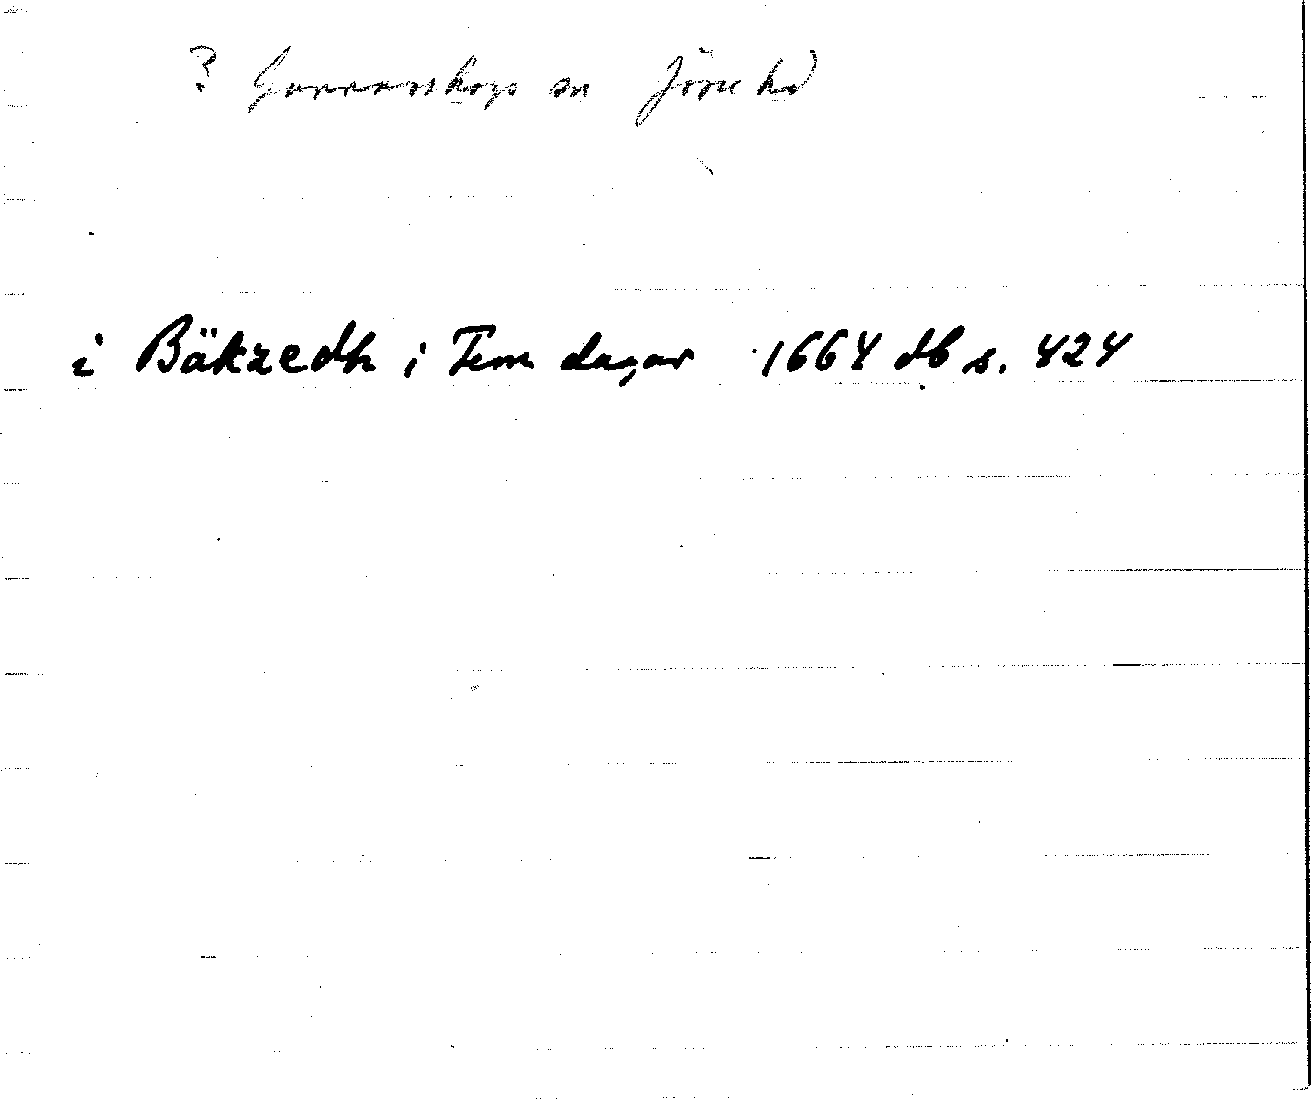 ? Gunnarskogs sn Jösse hd
i Bäkzedh i Fem dagar 1664 db s. 424